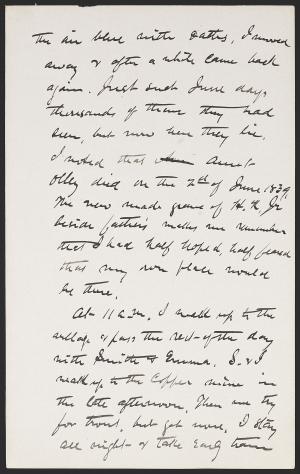 the air blue with oaths, I moved
away & after a while came back
again. Just such June days,
thousands of them they had
seen, but now here they lie.
I noted that Aunt
Olly died on the 2d of June 1839.
The new made grave of H. K. Jr
beside father's makes me remember
that I had half hoped, half feared
that my own place would
be there.
At 11 a.m. I walk up to the
village & pass the rest of the day
with Smith & Emma. S. & I
walk up to the Copper mine in
the late afternoon. Then we try
for trout, but get none. I stay
all night & take early train